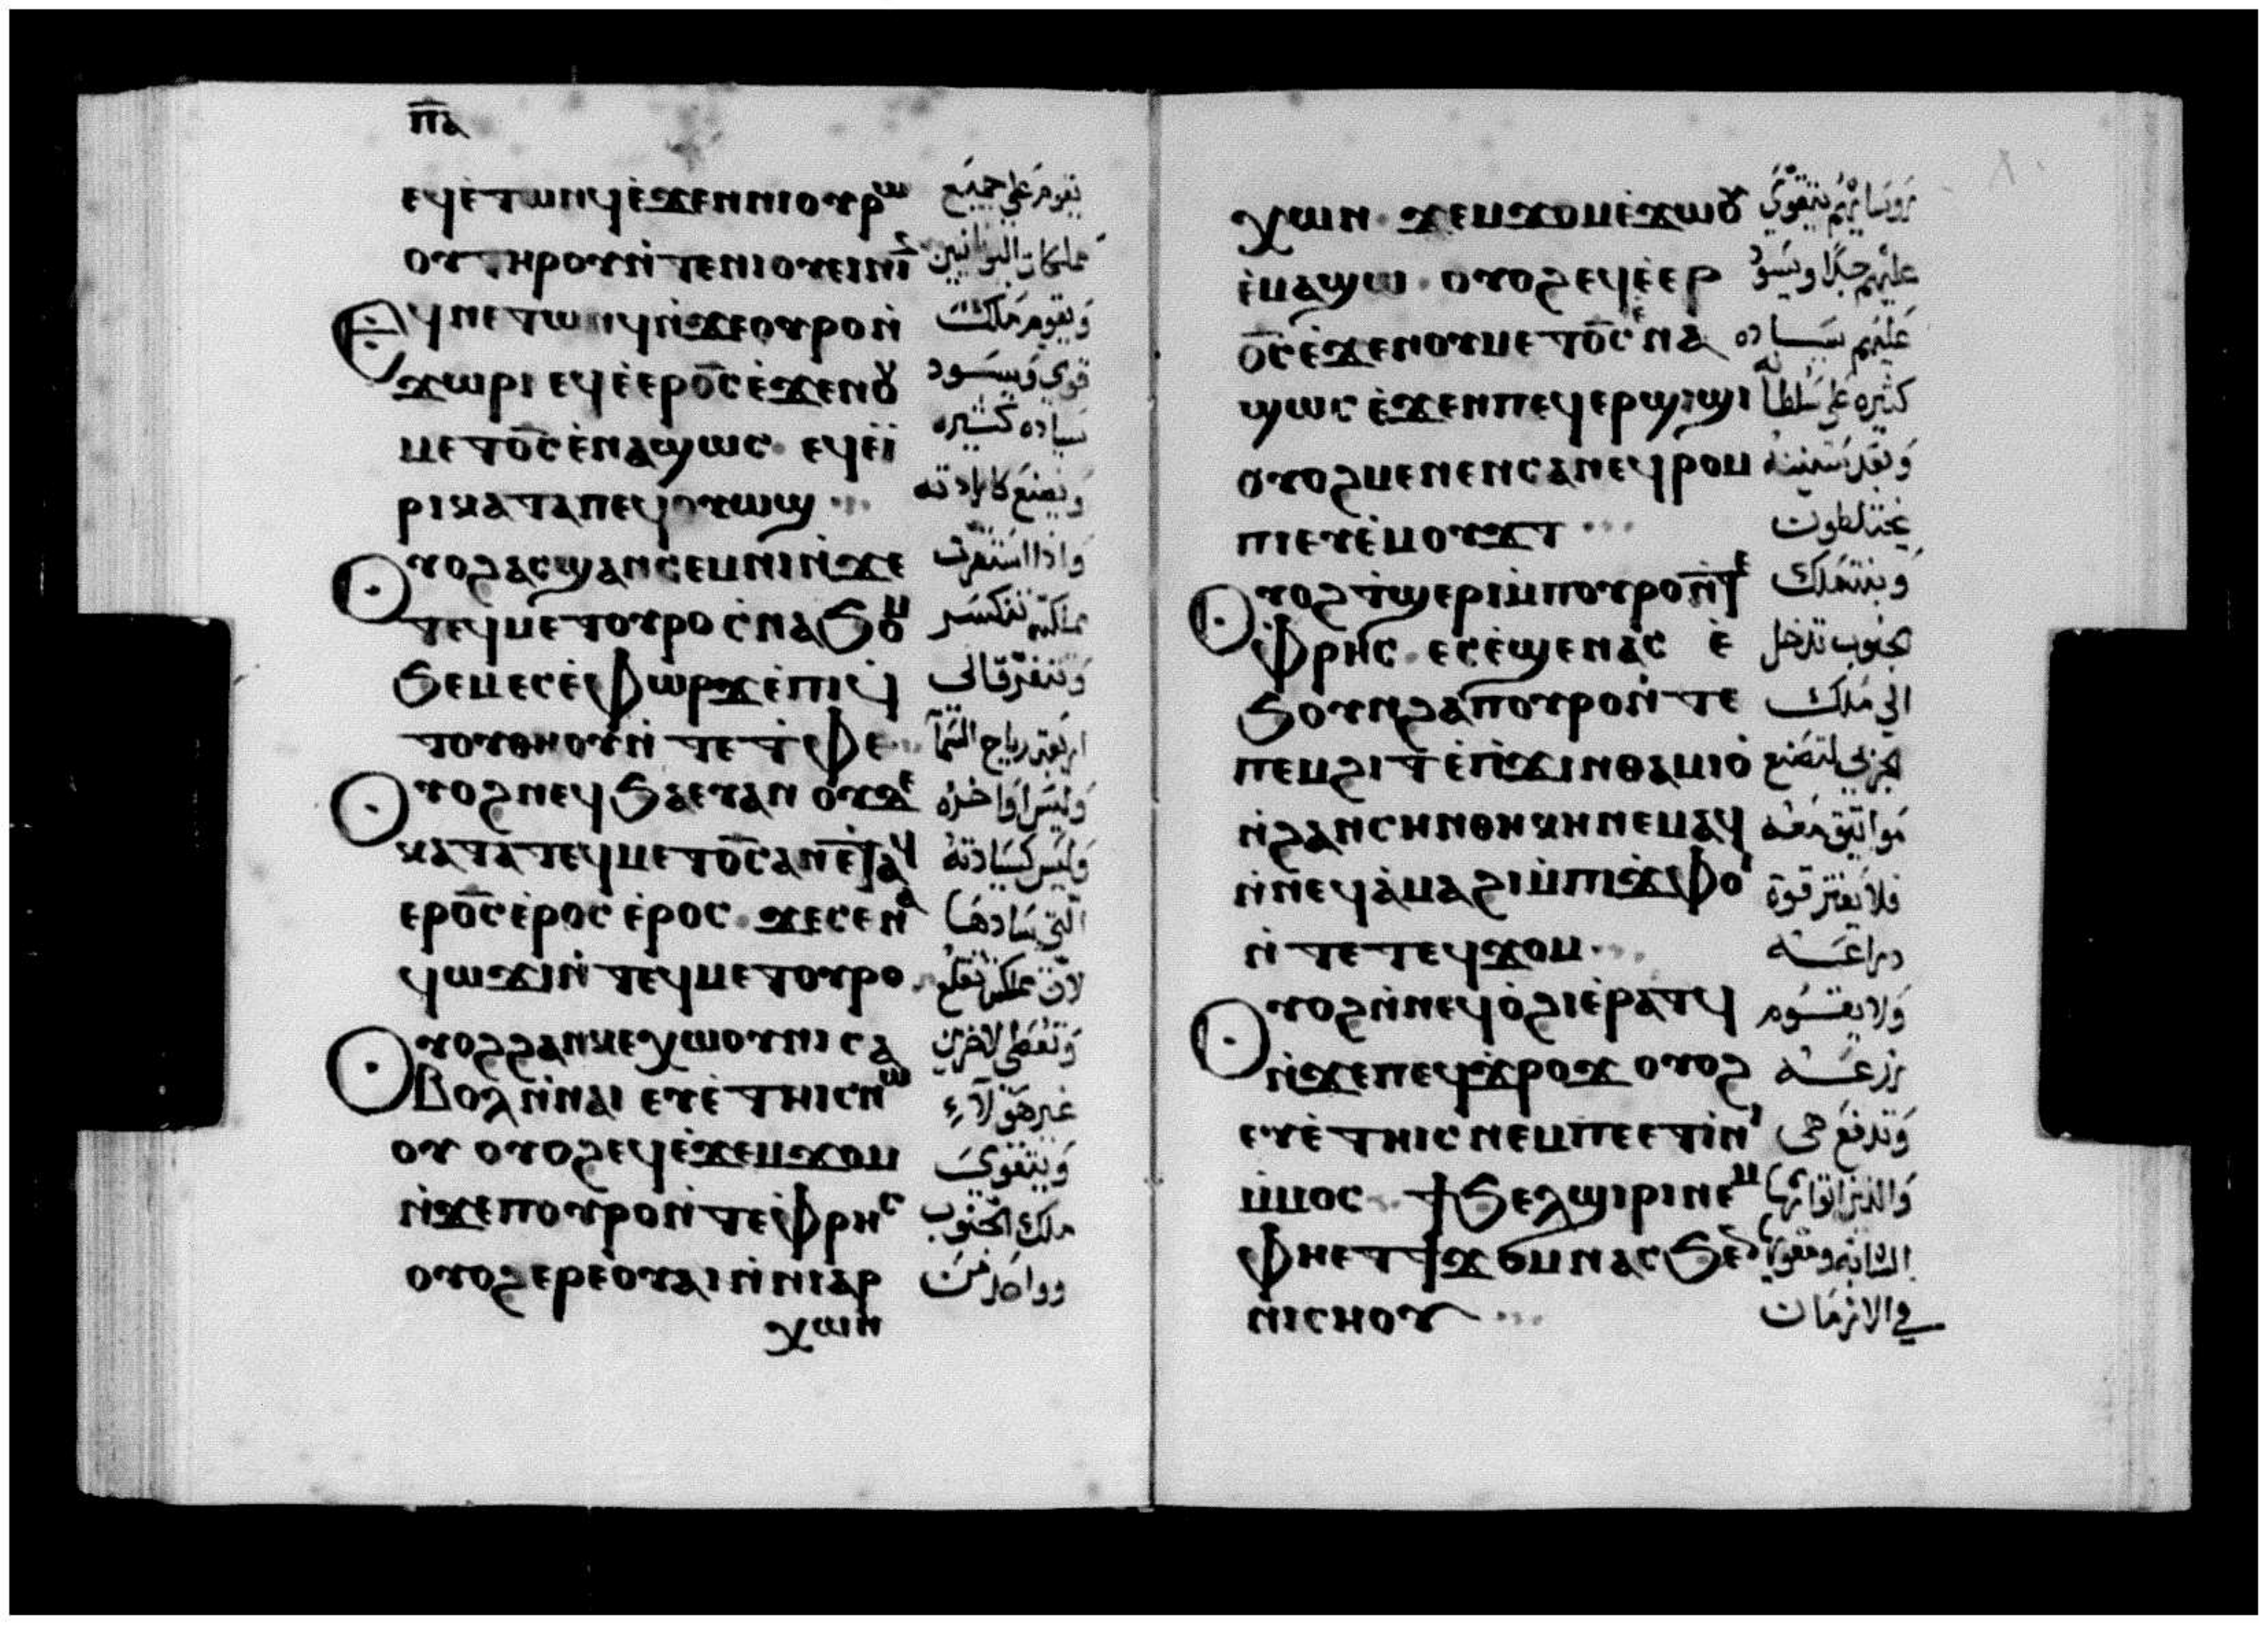 ⲡ̅ⲁ
ⲉϥⲉ̀ⲧⲱⲛϥⲉ̀ϫⲉⲛⲛⲓⲟⲩⲣⲱ
يقوم على جميع
ⲟⲩⲧⲏⲣⲟⲩⲛ̀ⲧⲉⲛⲓⲟⲩⲉⲓⲛⲓ
مملكات اليونانيين
Ⲉϥⲛⲉⲧⲱⲛϥⲛ̀ϫⲉⲟⲩⲣⲟⲛ̀
ويقوم ملك
ϫⲱⲣⲓ ⲉϥⲉ̀ⲉⲣⲟ̅ⲥ̅ⲉ̀ϫⲉⲛⲟⲩ
قوي ويسود
ⲙⲉⲧⲟ̅ⲥ̅ⲉ̀ⲛⲁϣⲱⲥ ⲉϥⲉ̀ⲓ̀
سياده كثيره
ⲣⲓⲕⲁⲧⲁⲡⲉϥⲟⲩⲱϣ
ويصنع كارادته
Ⲟⲩⲟϩⲁⲥϣⲁⲛⲥⲉⲙⲛⲓⲛ̀ϫⲉ
واذا استقرت
ⲧⲉϥⲙⲉⲧⲟⲩⲣⲟⲥ̀ⲛⲁϧⲟⲩⲙ
مملكته تنكسر
ϧⲉⲙⲉⲥⲉ̀ⲫⲱⲣϫⲉ̀ⲡⲓϥ̅
وتتفرق الى
ⲧⲟⲩⲑⲏⲟⲩⲛ̀ⲧⲉⲧ̀ⲫⲉ
اربعة رياح السما
Ⲟⲩⲟϩⲛⲉϥϧⲁⲉⲩⲁⲛ ⲟⲩⲇⲉ
وليس اواخره
ⲕⲁⲧⲁⲧⲉϥⲙⲉⲧⲟ̅ⲥ̅ⲁⲛⲉ̀ⲧⲁϥ
وليس كسيادته
ⲉⲣⲟ̅ⲥ̅ⲉ̀ⲣⲟⲥ ⲉ̀ⲣⲟⲥ ϫⲉⲥⲉⲛⲁ
التي سادها
ϥⲱϫⲓⲛ̀ⲧⲉϥⲙⲉⲧⲟⲩⲣⲟ
لان مملكته تقلع
Ⲟⲩⲟϩϩⲁⲛⲕⲉⲭⲱⲟⲩⲛⲓⲥⲁ
وتعطى لاخرين
ⲃⲟⲗⲛ̀ⲛⲁⲓ ⲉⲩⲉ̀ⲧⲏⲓⲥⲛⲱ
غير هولاء
ⲟⲩ ⲟⲩⲟϩⲉϥⲉ̀ϫⲉⲙϫⲟⲙ
ويتقوى
ⲛ̀ϫⲉⲡⲟⲩⲣⲟⲛ̀ⲧⲉⲫⲣⲏⲥ
ملك الجنوب
ⲟⲩⲟϩⲉⲣⲉⲟⲩⲁⲓⲛ̀ⲛⲓⲁⲣ
وواحد من
ⲭⲱⲛ
ⲭⲱⲛ ϫⲉⲙϫⲟⲙⲉ̀ϫⲱⲟⲩ
روسايهم يتقوي
ⲉ̀ⲙⲁϣⲱ ⲟⲩⲟϩⲉϥⲉ̀ⲉⲣ
عليهم جدا ويسود
ⲟ̅ⲥ̅ⲉ̀ϫⲉⲛⲟⲩⲙⲉⲧⲟ̅ⲥ̅ⲉⲛⲁ
عليهم سياده
ϣⲱⲥ ⲉ̀ϫⲉⲛⲡⲉϥⲉⲣϣⲓϣⲓ
كثيره على سلطانه
ⲟⲩⲟϩⲙⲉⲛⲉⲛⲥⲁⲛⲉϥⲣⲟⲙ
وبعد سنينه
ⲡⲓⲉⲩⲉ̀ⲙⲟⲩϫⲧ
يختلطون
Ⲟⲩⲟϩⲧ̀ϣⲉⲣⲓⲙ̀ⲡⲟⲩⲣⲟⲛ̀ⲧⲉ
وبنت ملك
ⲫⲣⲏⲥ ⲉⲥⲉ̀ϣⲉⲛⲁⲥ ⲉ̀
الجنوب تدخل
ϧⲟⲩⲛϩⲁⲡⲟⲩⲣⲟⲛ̀ⲧⲉ
الي ملك
ⲡⲉⲙϩⲓⲧ ⲉ̀ⲡ̀ϫⲓⲛⲑⲁⲙⲓⲟ̀
بحري لتصنع
ⲛ̀ϩⲁⲛⲥⲏⲛⲑⲏⲕⲏⲛⲉⲙⲁϥ
مواثيق معه
ⲛ̀ⲛⲉϥⲁ̀ⲙⲁϩⲓⲙ̀ⲡⲓϫⲫⲟⲓ
فلا يقتر قوة
ⲛ̀ⲧⲉⲧⲉϥϫⲟⲙ
دراعه
Ⲟⲩⲟϩⲛ̀ⲛⲉϥⲟ̀ϩⲓⲉ̀ⲣⲁⲧϥ
ولا يقوم
ⲛ̀ϫⲉⲡⲉϥϫ̀ⲣⲟϫ ⲟⲩⲟϩ
زرعه
ⲉⲩⲉ̀ⲧⲏⲓⲥⲛⲉⲙⲡⲉⲉⲧⲓⲛⲓ
وتدفع هى
ⲙ̀ⲙⲟⲥ ϯϧⲉⲗϣⲓⲣⲓⲛⲉⲙ
والذين اتوا بها
ⲫⲏⲉⲧϯϫⲟⲙⲛⲁⲥϧⲉ
الشابه ومقويها
ⲛⲓⲥⲏⲟⲩ
في الازمان